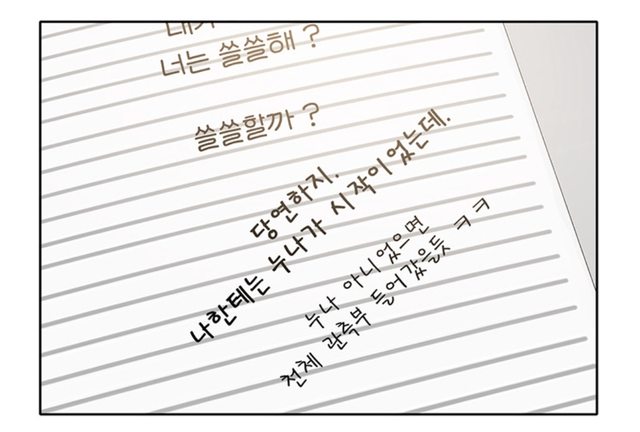 너는 쓸쓸해 ?
쓸쓸할까 ?
당연하지.
나한테는 누나가 시작이었는데.
누나 아니었으면
천체 관측부 들어갔을듯 ㅋㅋ